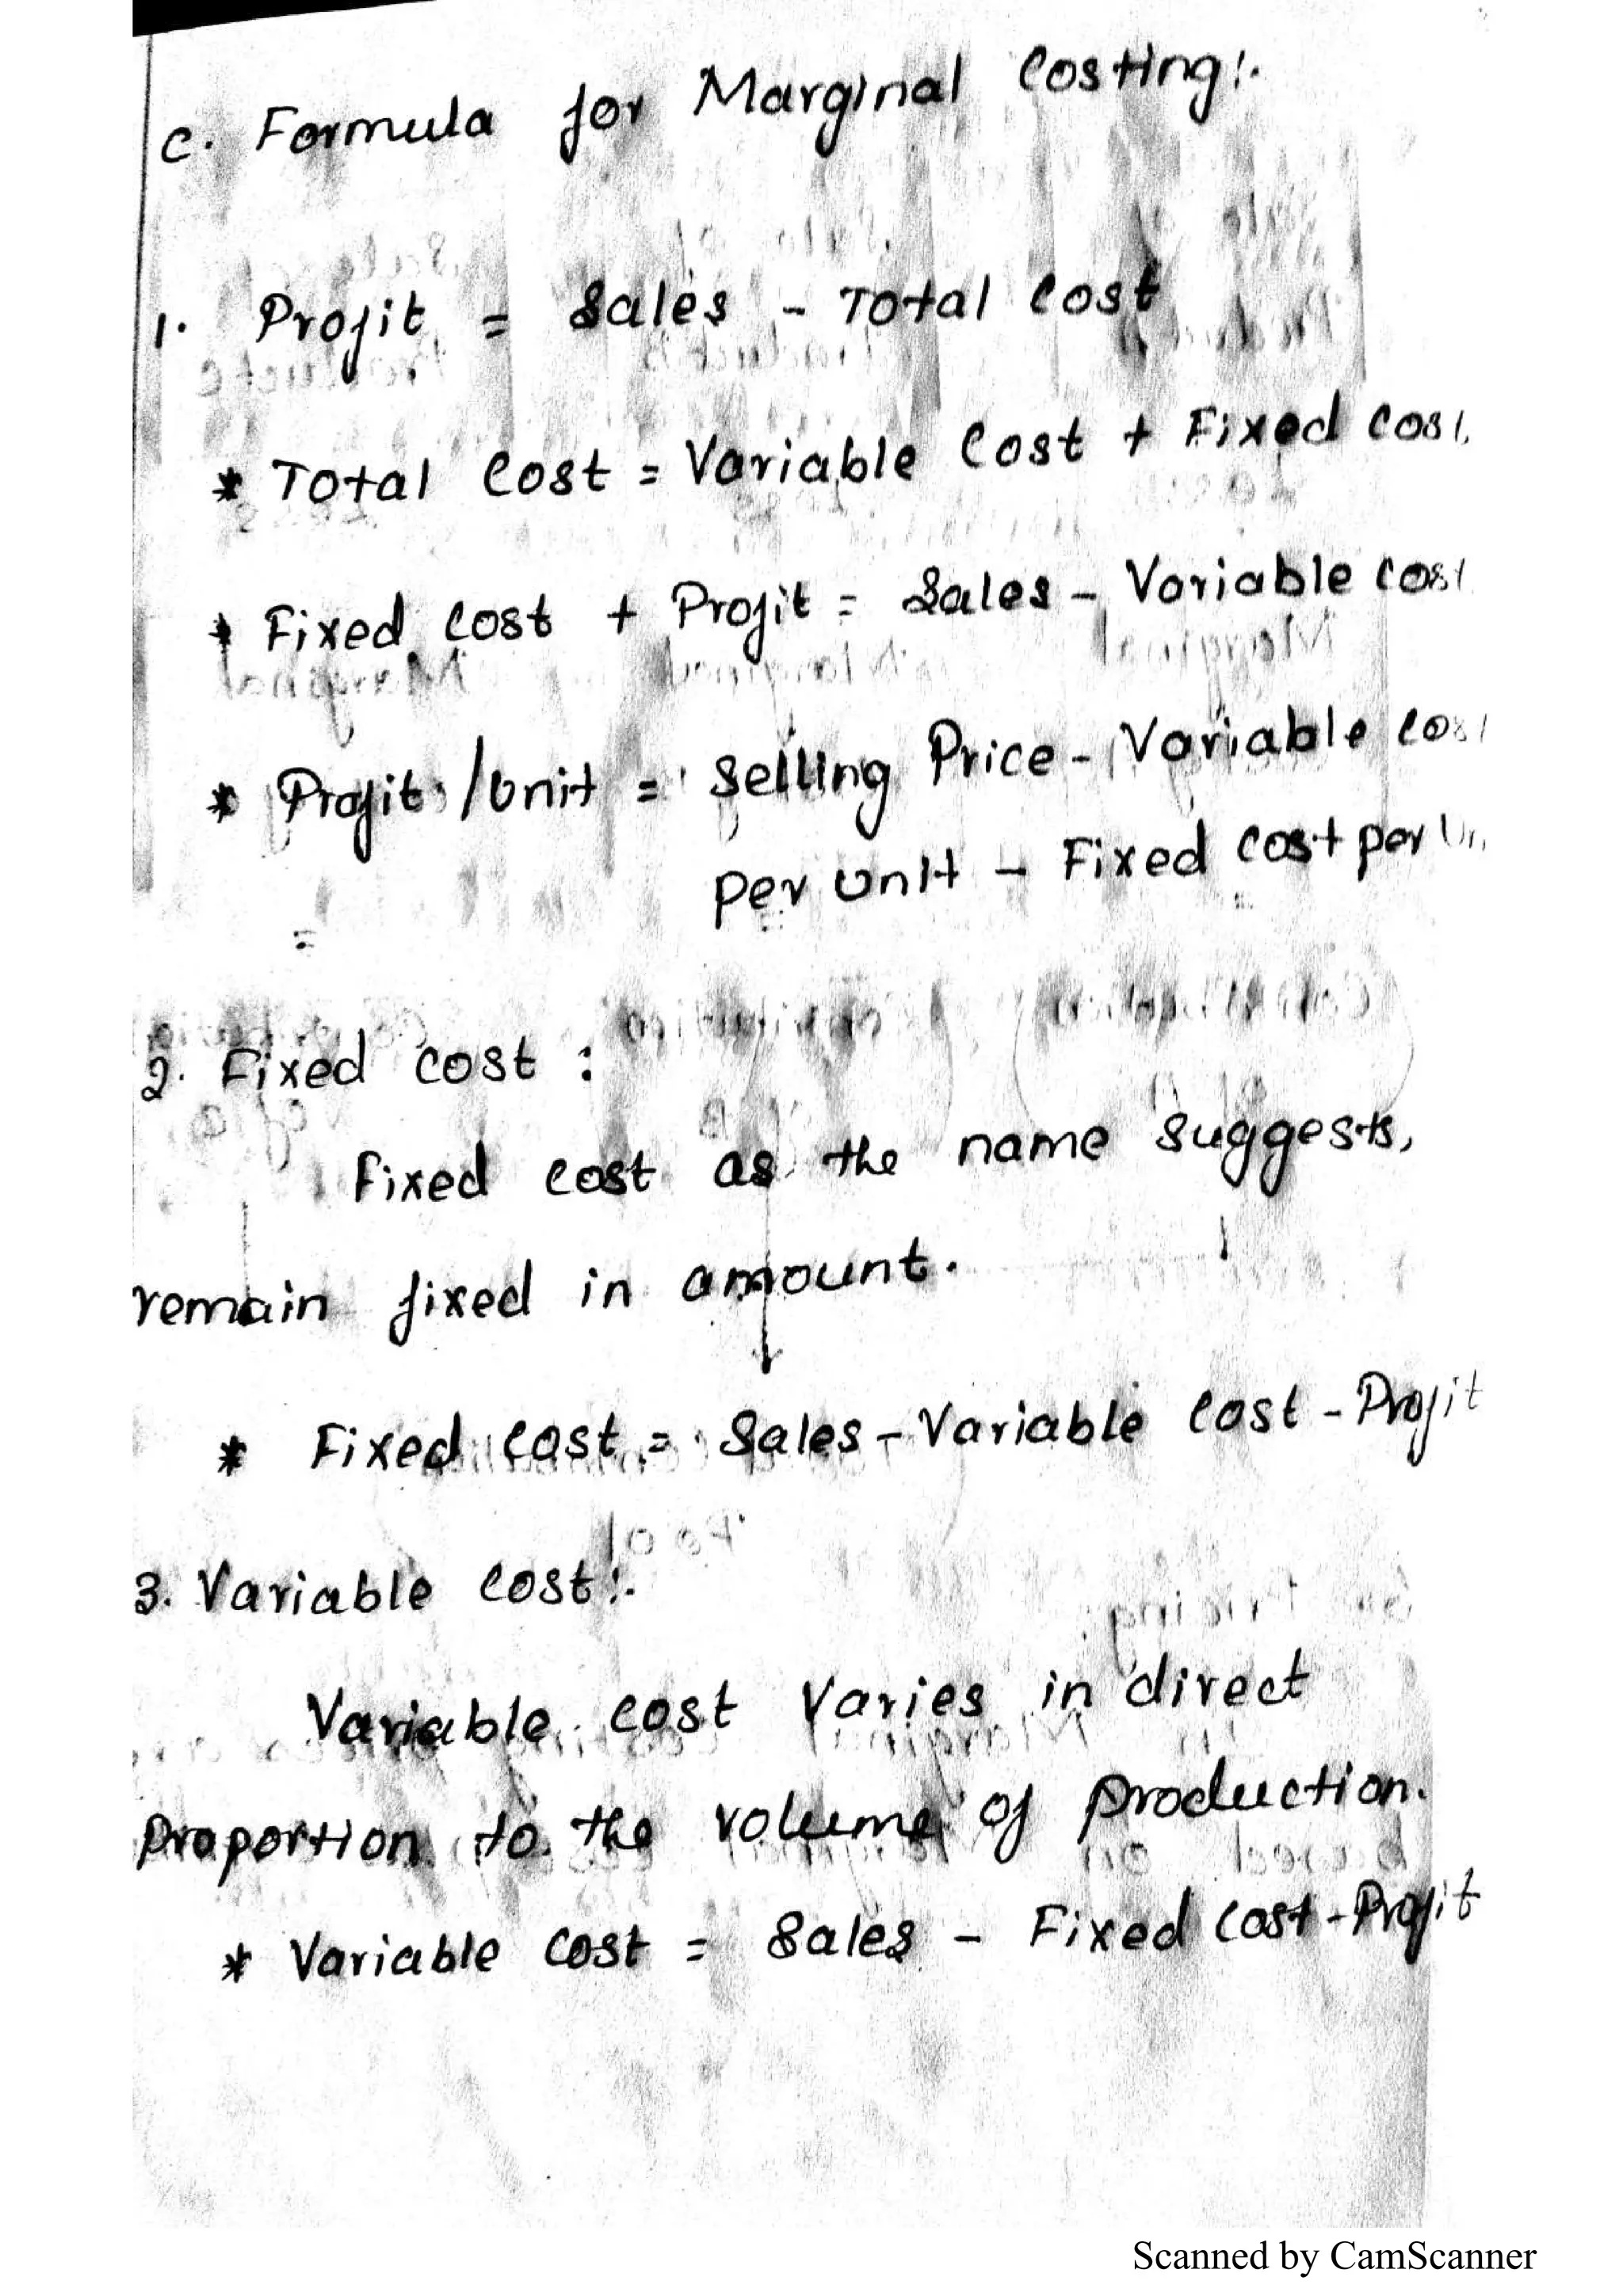 C. Formula for Marginal Costing:-
1. Profit = Sales - Total Cost
* Total Cost = Variable Cost + Fixed Cost.
* Fixed Cost + Profit = Sales - Variable Cost
* Profit/Unit = Selling Price - Variable Cost
per Unit - Fixed Cost per
=
2. Fixed Cost :
Fixed Cost as the name suggests,
remain fixed in amount.
* Fixed Cost = Sales - Variable Cost - Profit
3. Variable Cost:-
Variable cost Varies in direct
Proportion to the volume of production.
* Variable Cost = Sales - Fixed Cost - Profit
Scanned by CamScanner